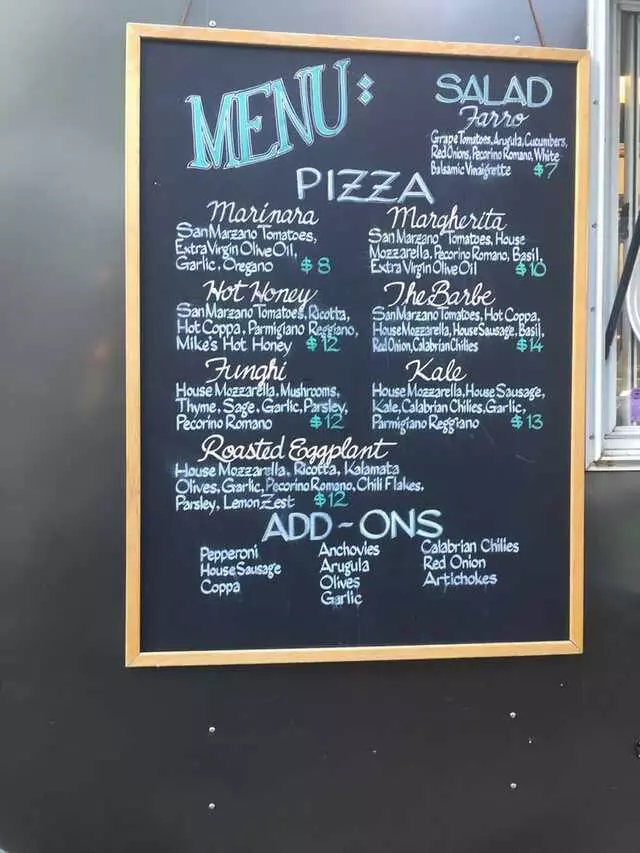 MENU:
SALAD
Farro
Grape Tomatoes, Arugula, Cucumbers,
Red Onions, Pecorino Romano, White
Balsamic Vinaigrette $7
PIZZA
Marinara
San Marzano Tomatoes,
Extra Virgin Olive Oil,
Garlic, Oregano $8
Margherita
San Marzano Tomatoes, House
Mozzarella, Pecorino Romano, Basil,
Extra Virgin Olive Oil $10
Hot Honey
San Marzano Tomatoes, Ricotta,
Hot Coppa, Parmigiano Reggiano,
Mike's Hot Honey $12
The Barbe
San Marzano Tomatoes, Hot Coppa,
House Mozzarella, House Sausage, Basil,
Red Onion, Calabrian Chilies $14
Funghi
House Mozzarella, Mushrooms,
Thyme, Sage, Garlic, Parsley,
Pecorino Romano $12
Kale
House Mozzarella, House Sausage,
Kale, Calabrian Chilies, Garlic,
Parmigiano Reggiano $13
Roasted Eggplant
House Mozzarella, Ricotta, Kalamata
Olives, Garlic, Pecorino Romano, Chili Flakes,
Parsley, Lemon Zest $12
ADD-ONS
Pepperoni
House Sausage
Coppa
Anchovies
Arugula
Olives
Garlic
Calabrian Chilies
Red Onion
Artichokes